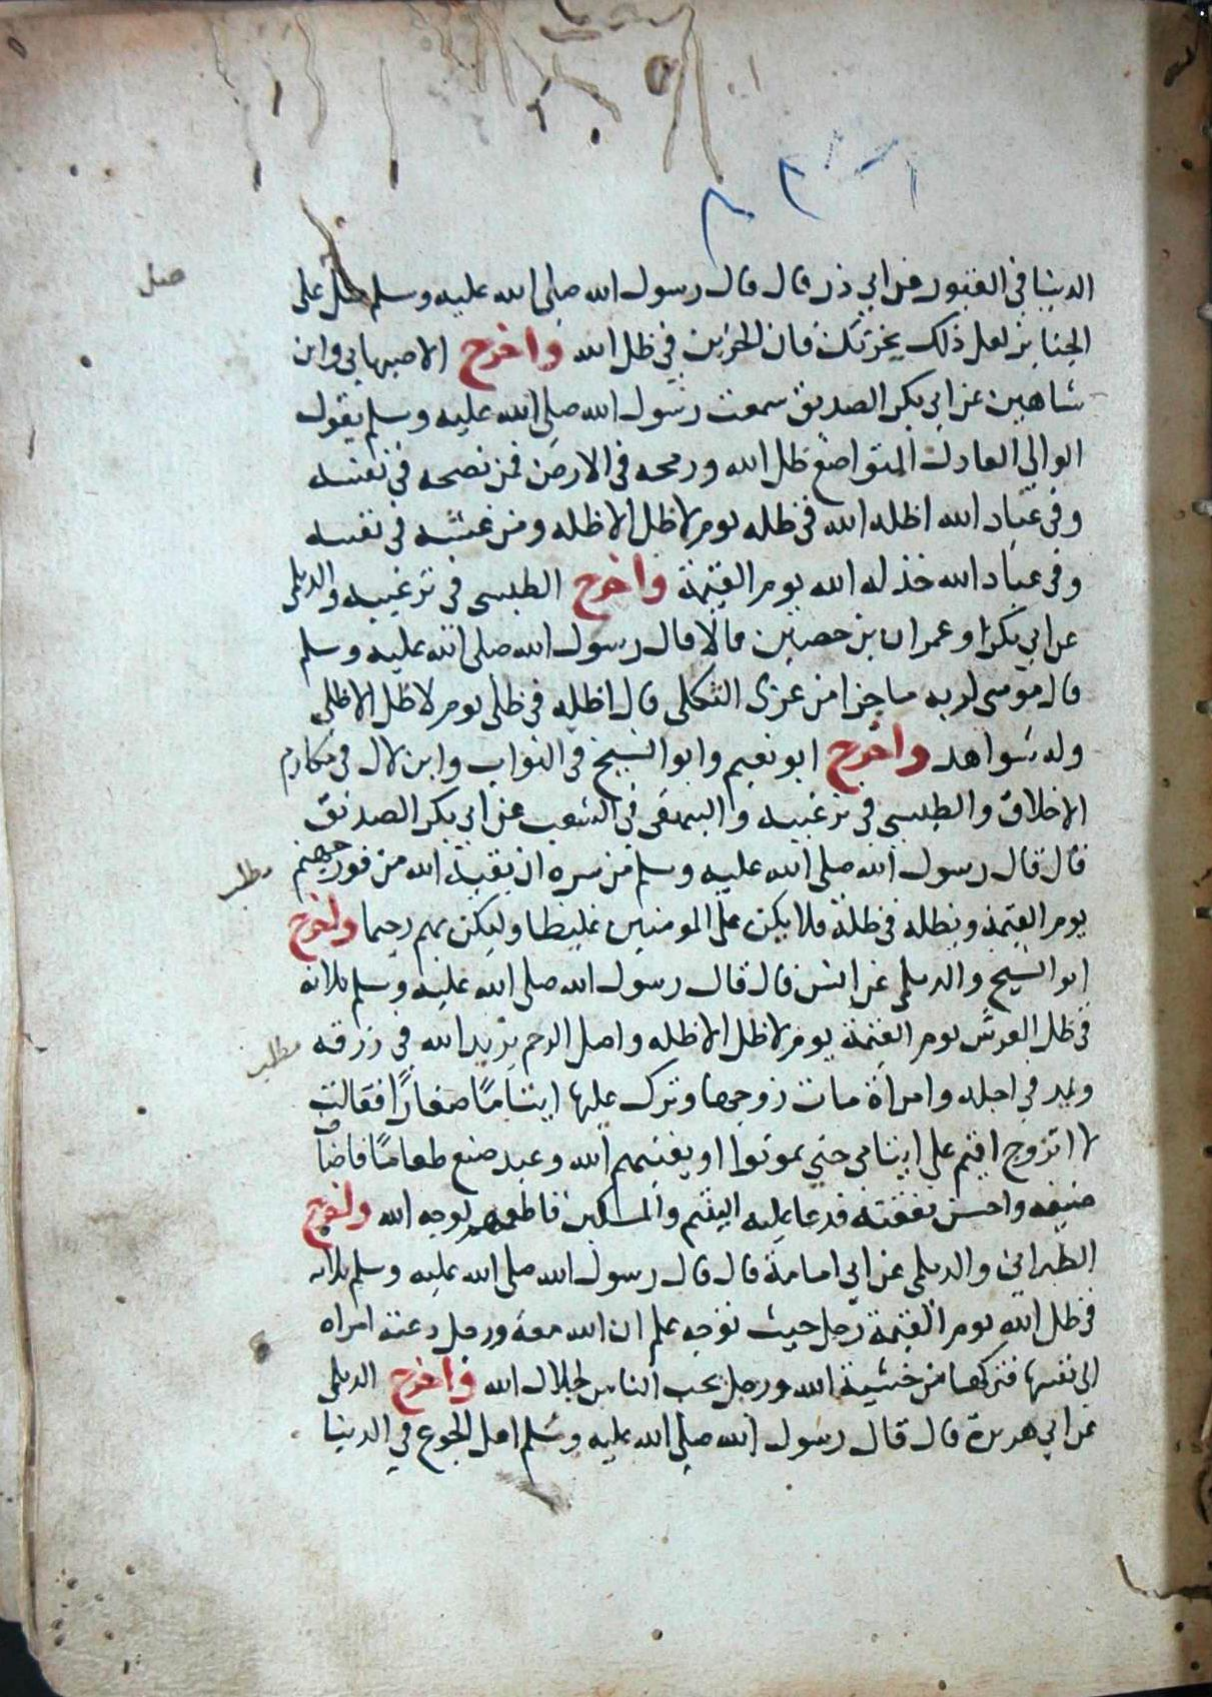 الدنيا في القبور عن ابي ذر قال قال رسول الله صلى الله عليه وسلم صل على
صل
الجنايز لعل ذلك يحزنك فان الحزين في ظل الله واخرج الاصبهاني وابن
شاهين عن ابي بكر الصديق سمعت رسول الله صلى الله عليه وسلم يقول
الوالي العادل المتواضع ظل الله ورمحه في الارض فمن نصحه في نفسه
وفي عباد الله اظله الله في ظله يوم لا ظل الا ظله ومن غشه في نفسه
وفي عباد الله خذله الله يوم القيمة واخرج الطبسي في ترغيبه والديلمي
عن ابي بكر وعمران بن حصين قالا قال رسول الله صلى الله عليه وسلم
قال موسى لربه ما جزا من عزى الثكلى قال اظله في ظلي يوم لا ظل الا ظلي
وله شواهد واخرج ابو نعيم وابو الشيخ في الثواب وابن لال في مكارم
الاخلاق والطبسي في ترغيبه والبيهقي في الشعب عن ابي بكر الصديق
قال قال رسول الله صلى الله عليه وسلم من سره ان يقيه الله من فور جهنم
مطلب
يوم القيمة ويظله في ظله فلا يكن على المومنين غليظا وليكن بهم رحيما واخرج
ابو الشيخ والديلمي عن انس قال قال رسول الله صلى الله عليه وسلم ثلاثة
في ظل العرش يوم القيمة يوم لا ظل الا ظله واصل الرحم يزيد الله في رزقه
مطلب
ويمد في اجله وامراة مات زوجها وترك عليها ايتامًا صغارًا فقالت
لا اتزوج اقيم على ايتامي حتى يموتوا او يغنيهم الله وعبد صنع طعامًا فاضاف
ضيفه واحسن نفقته فدعا عليه اليتيم والمسكين فاطعمهم لوجه الله واخرج
الطبراني والديلمي عن ابي امامة قال قال رسول الله صلى الله عليه وسلم ثلاثه
في ظل الله يوم القيمة رجل حيث توجه علم ان الله معه ورجل دعته امراه
الى نفسها فتركها من خشية الله ورجل يحب الناس لجلال الله واخرج الديلمي
عن ابي هريرة قال قال رسول الله صلى الله عليه وسلم اهل الجوع في الدنيا